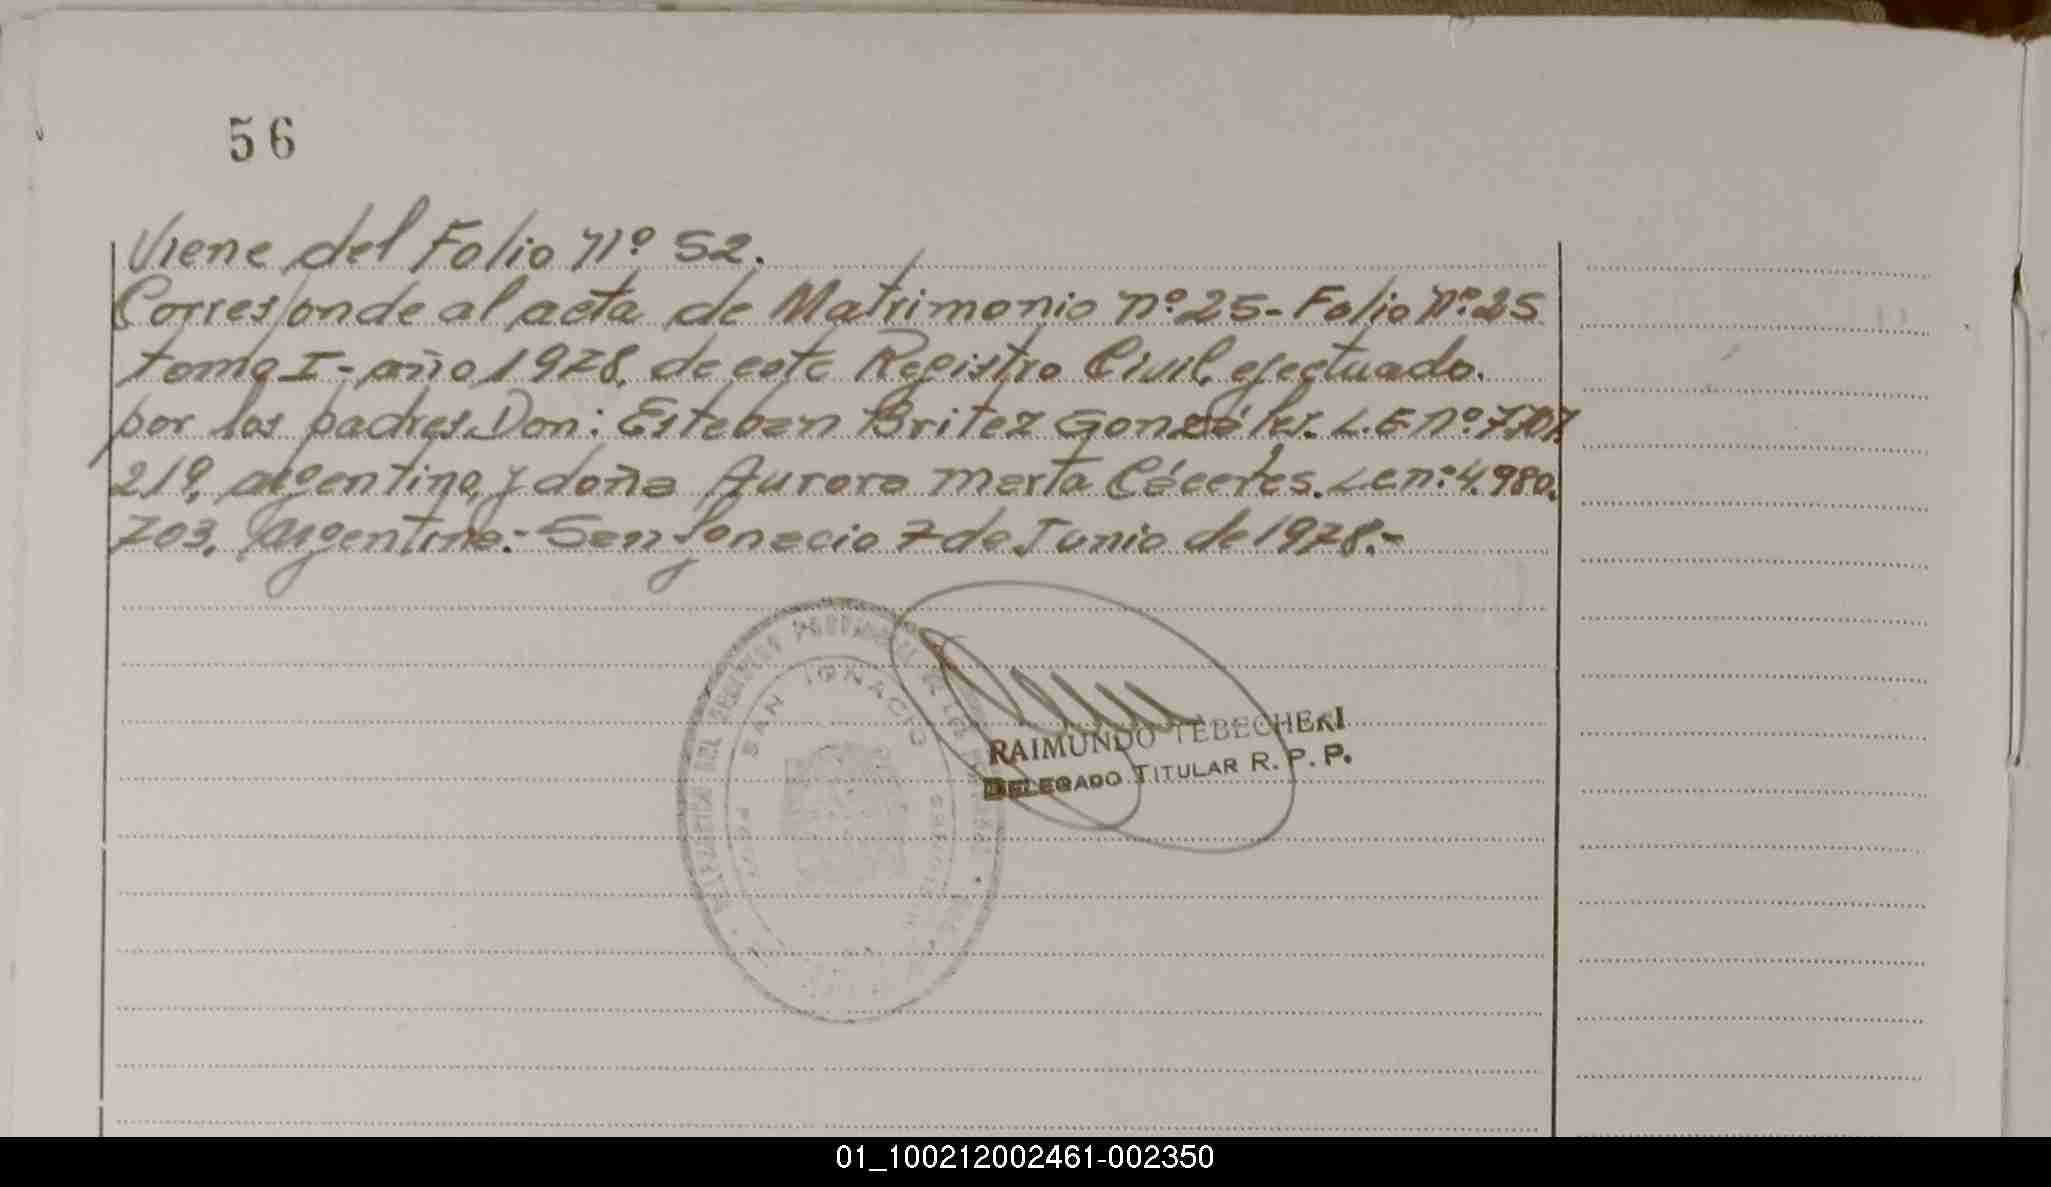 56
Viene del Folio Nº 52.
Corresponde al acta de Matrimonio nº 25- Folio Nº 25
tomo I- año 1978, de este Registro Civil, efectuado.
por los padres Don: Esteban Britez González. L.E Nº 7.707.
219, argentino, y doña Aurora Marta Cáceres. L c n: 4.980.
703, Argentina.- San Ignacio 7 de Junio de 1978.-
SAN IGNACIO
RAIMUNDO TEBECHERI
DELEGADO TITULAR R. P. P.
01_100212002461-002350